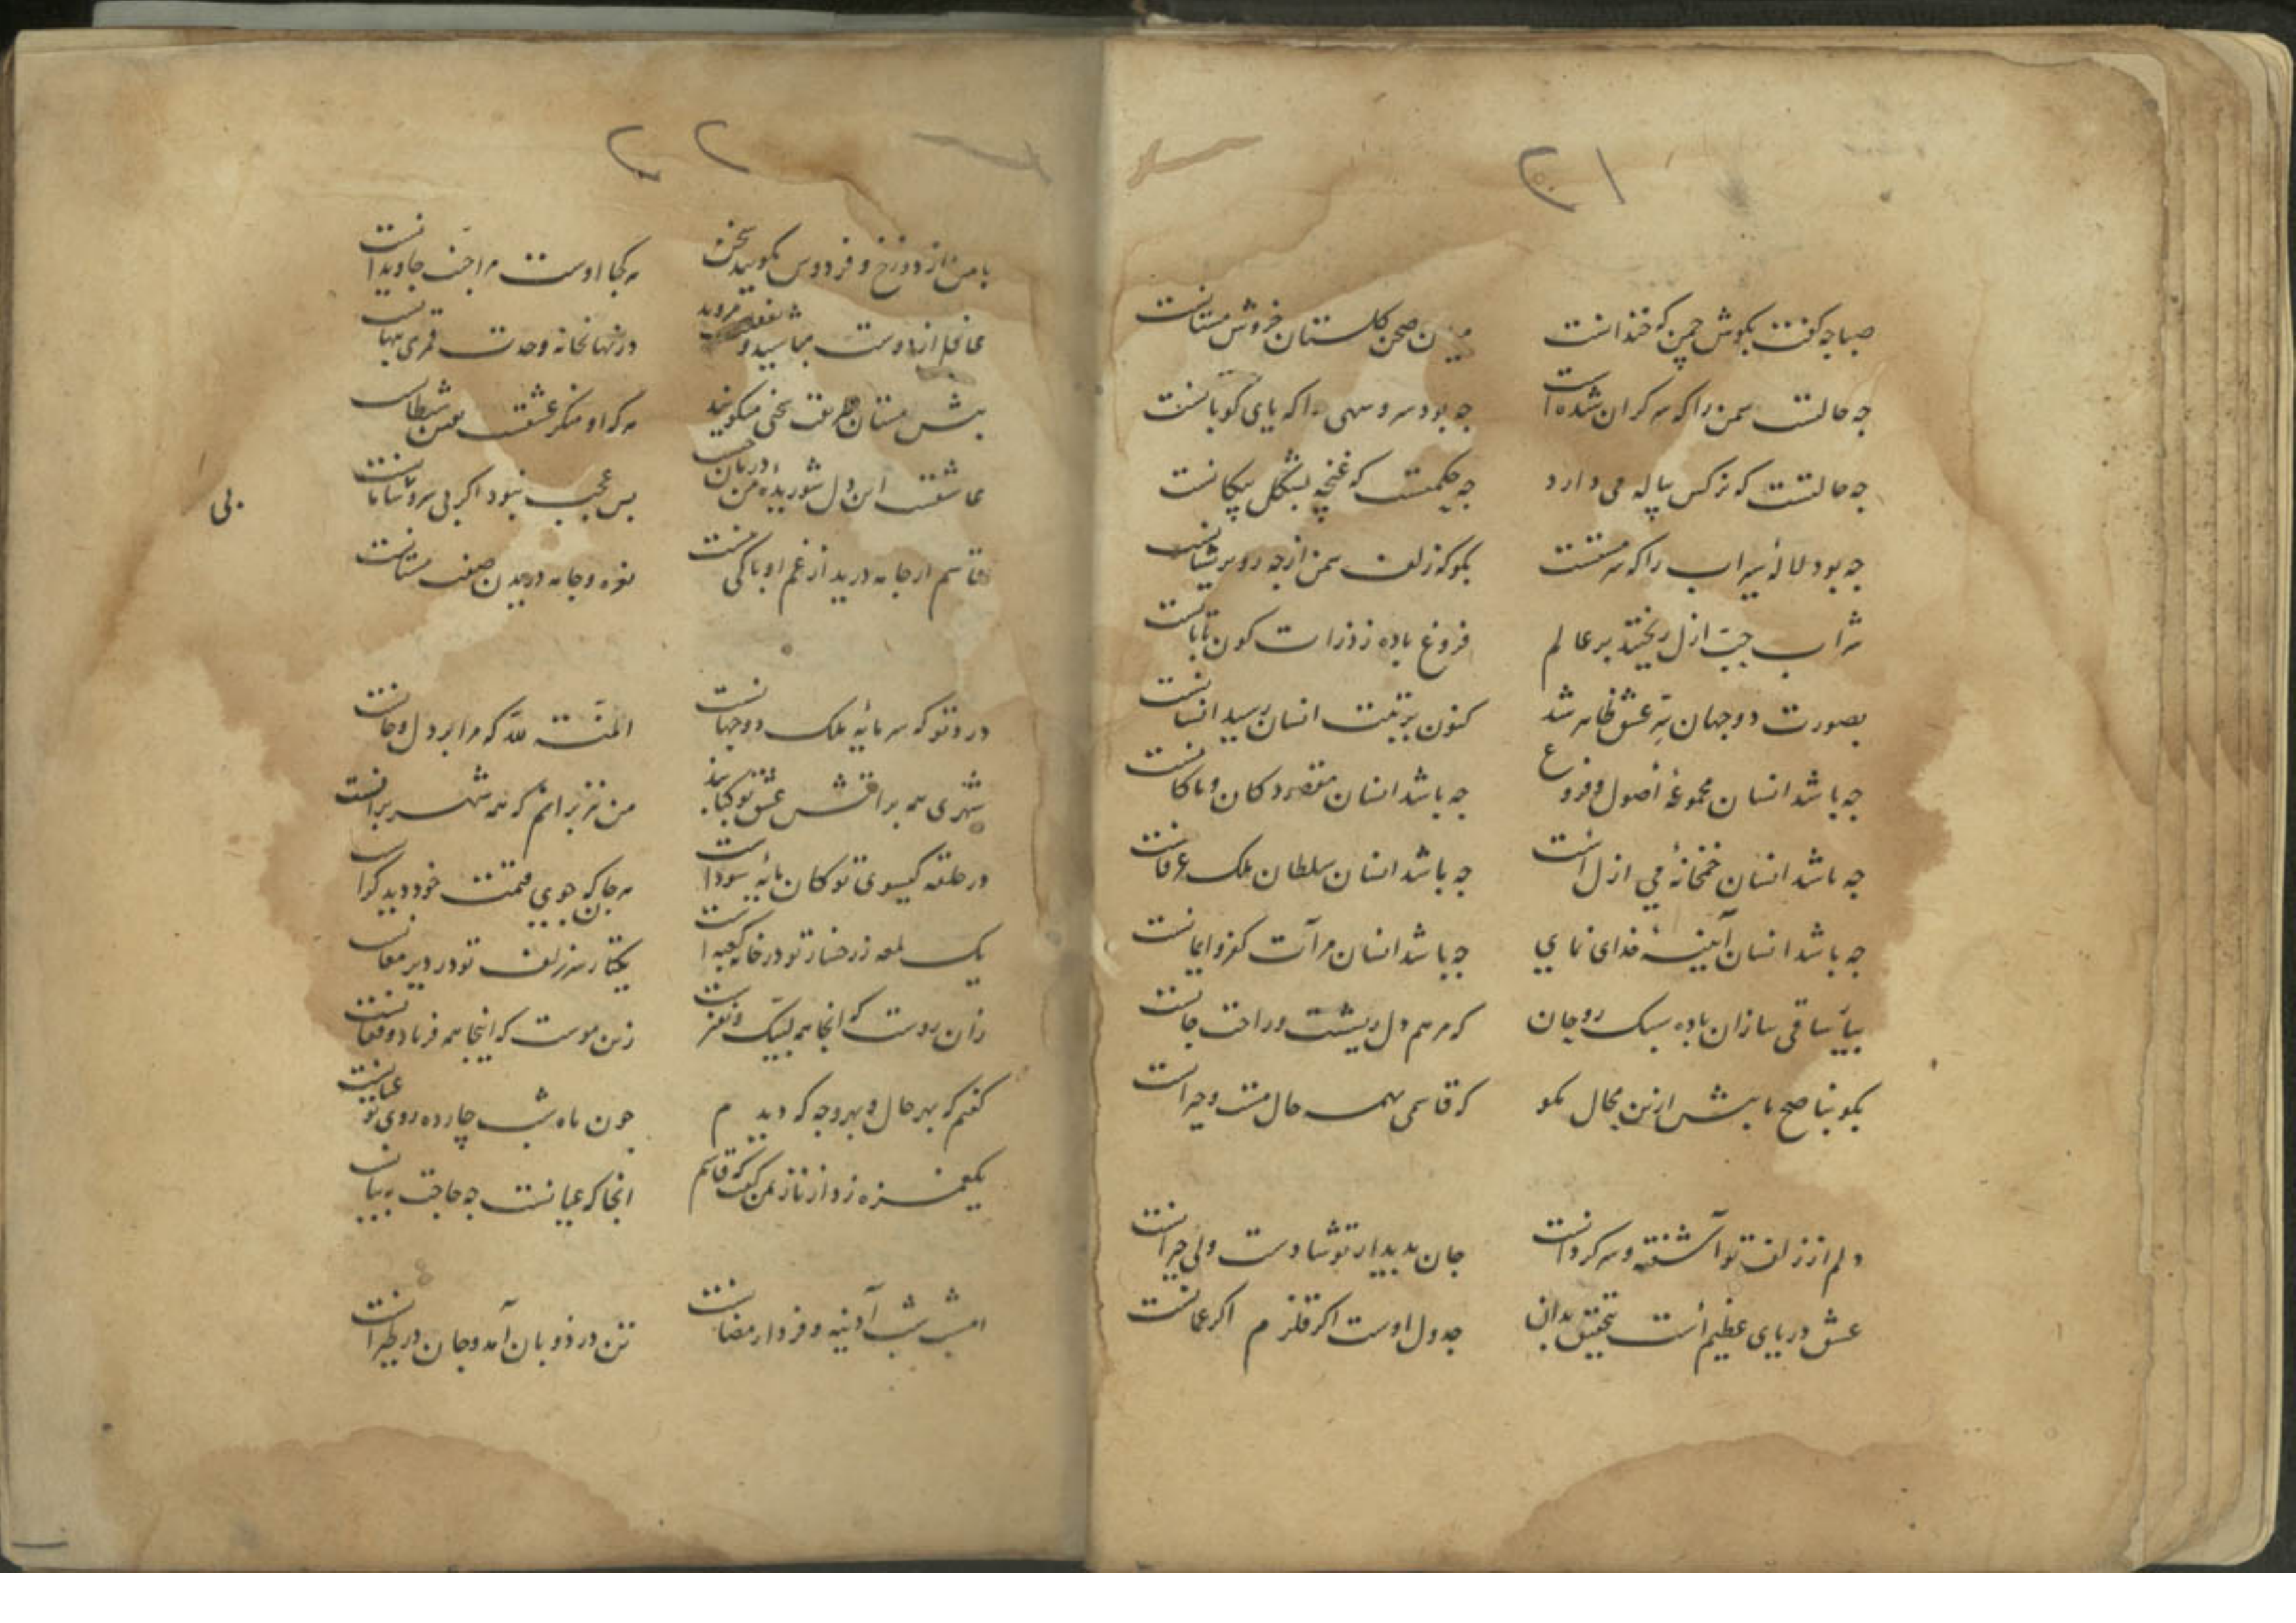 ۲۱
صبا چه گفت بگوش چمن که خندانست
میان صحن گلستان خروش مستانست
چه حالتست سمن را که سرگران شده است
چه بود سرو سهی را که پای کوبانست
چه حالتست که نرگس پیاله می دارد
چه حکمتست که غنچه بشکل پیکانست
چه بود لالهٔ سیراب را که سرمستست
بگو که زلف سمن از چه رو پریشانست
شراب حب ازل ریختند بر عالم
فروغ باده ز ذرات کون تابانست
بصورت دو جهان سر عشق ظاهر شد
کنون برتبت انسان رسید انسانست
چه باشد انسان مجموعهٔ اصول و فروع
چه باشد انسان مقصود کان و ما کانست
چه باشد انسان خمخانهٔ می ازل است
چه باشد انسان سلطان ملک عرفانست
چه باشد انسان آیینهٔ خدای نمای
چه باشد انسان مرآت کفر و ایمانست
بیا ساقی سازان باده سبک روحان
که مرهم دل ریشست و راحت جانست
بگو بناصح ما بیش ازین محال مگو
که قاسمی همه حال مست و حیرانست
دلم از زلف تو آشفته و سرگردانست
جان بدیدار تو شادست ولی حیرانست
عشق دریای عظیم است بتحقیق بدان
جدول اوست اگر قلزم اگر عمانست
۲۲
با من از دوزخ و فردوس مگویید سخن
هر کجا اوست مرا جنت جاویدانست
غافل از دوست مباشید و بغفلت مروید
در نهانخانه وحدت قمری پنهانست
پیش مستان طریقت سخنی میگویند
هر که او منکر عشقست یقین شیطانست
عاشقست این دل شوریدهٔ من در پی آن
بس عجب نبود اگر بی سر و سامانست
بی
قاسم ار جامه درید از غم او باکی نیست
نعره و جامه دریدن صفت مستانست
درد تو که سرمایهٔ ملک دو جهانست
المنة لله که مرا بر دل و جانست
شهری همه بر آتش عشق تو کبابند
من نیز برانم که همه شهر برانست
در حلقهٔ گیسوی تو کان مایهٔ سوداست
هر جا که بجویی قیمتت خود دید گرانست
یک لمعه ز رخسار تو در خانهٔ کعبه است
یکتار سر زلف تو در دیر مغانست
زان روست که آنجا همه لبیک و نفیرست
زین موست که اینجا همه فریاد و فغانست
گفتم که بهر حال و بهر وجه که دیدم
چون ماه شب چارده روی تو عیانست
یک غمزه زد از ناز بمن گفت که قاسم
آنجا که عیانست چه حاجت به بیانست
امشب شب آدینه و فردا رمضانست
تن در ذوبان آمد و جان در طیرانست